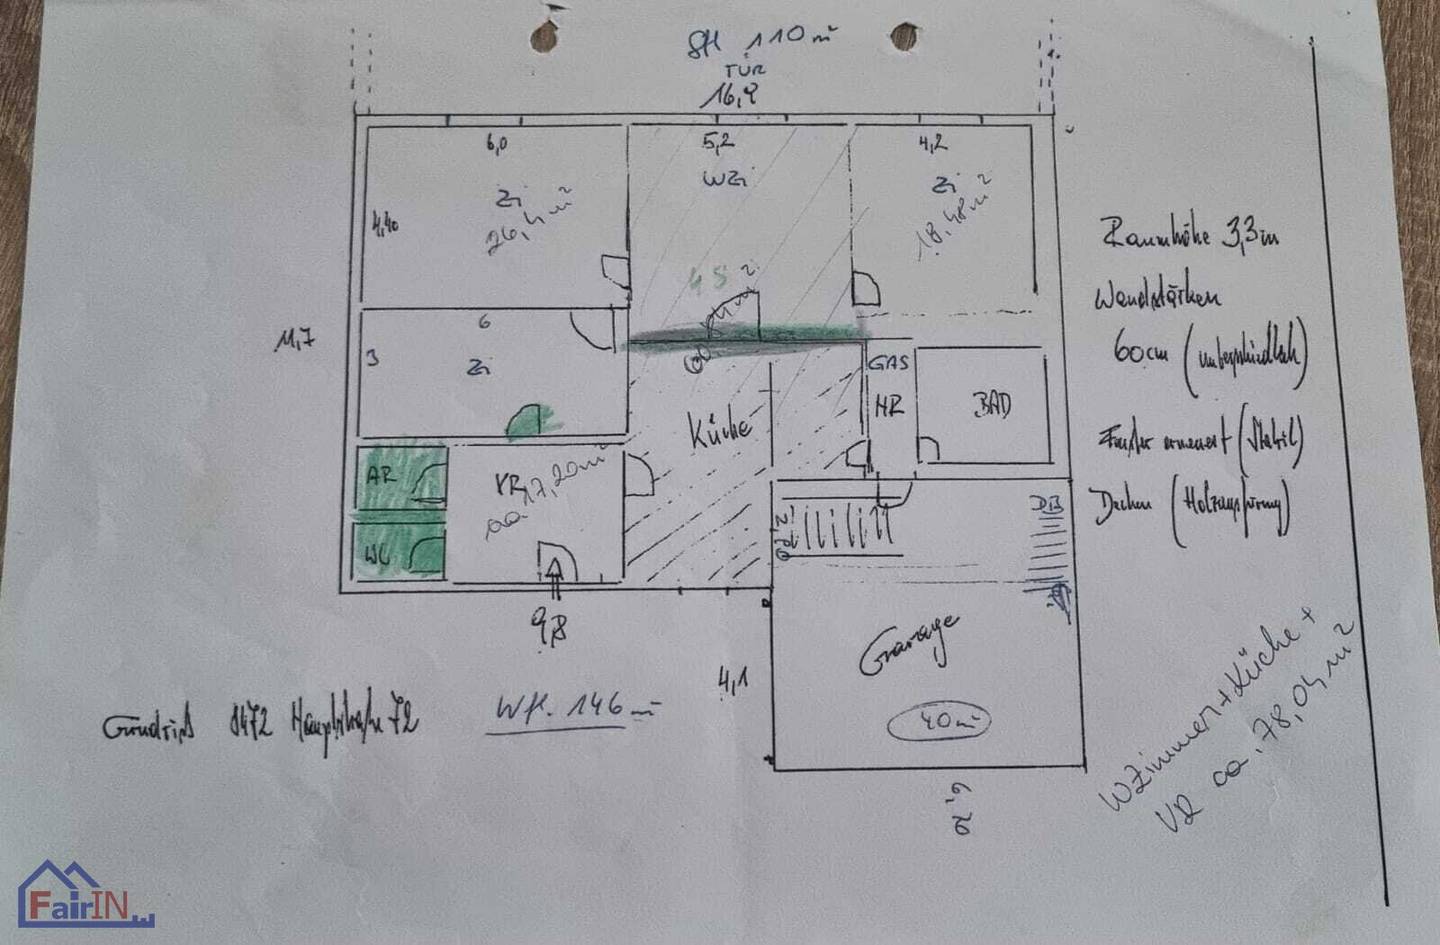 110 m²
TÜR
16,9
6,0
5,2
4,2
Zi
26,4 m²
WZi
Zi
18,48 m²
4,40
48
60,84 m²
11,7
6
3
Zi
GAS
HR
BAD
Küche
AR
VR
ca 17,20 m²
WC
2,70
DB
9,8
Garage
40 m²
4,1
6,20
Raumhöhe 3,3m
Wandstärken
60cm (unterschiedlich)
Fenster erneuert (Stabil)
Decken (Holztramdecke)
WZimmer+Küche+
VR ca. 78,04 m²
Grundriß 8472 Hauptstraße 72
Wfl. 146 m²
FairIN